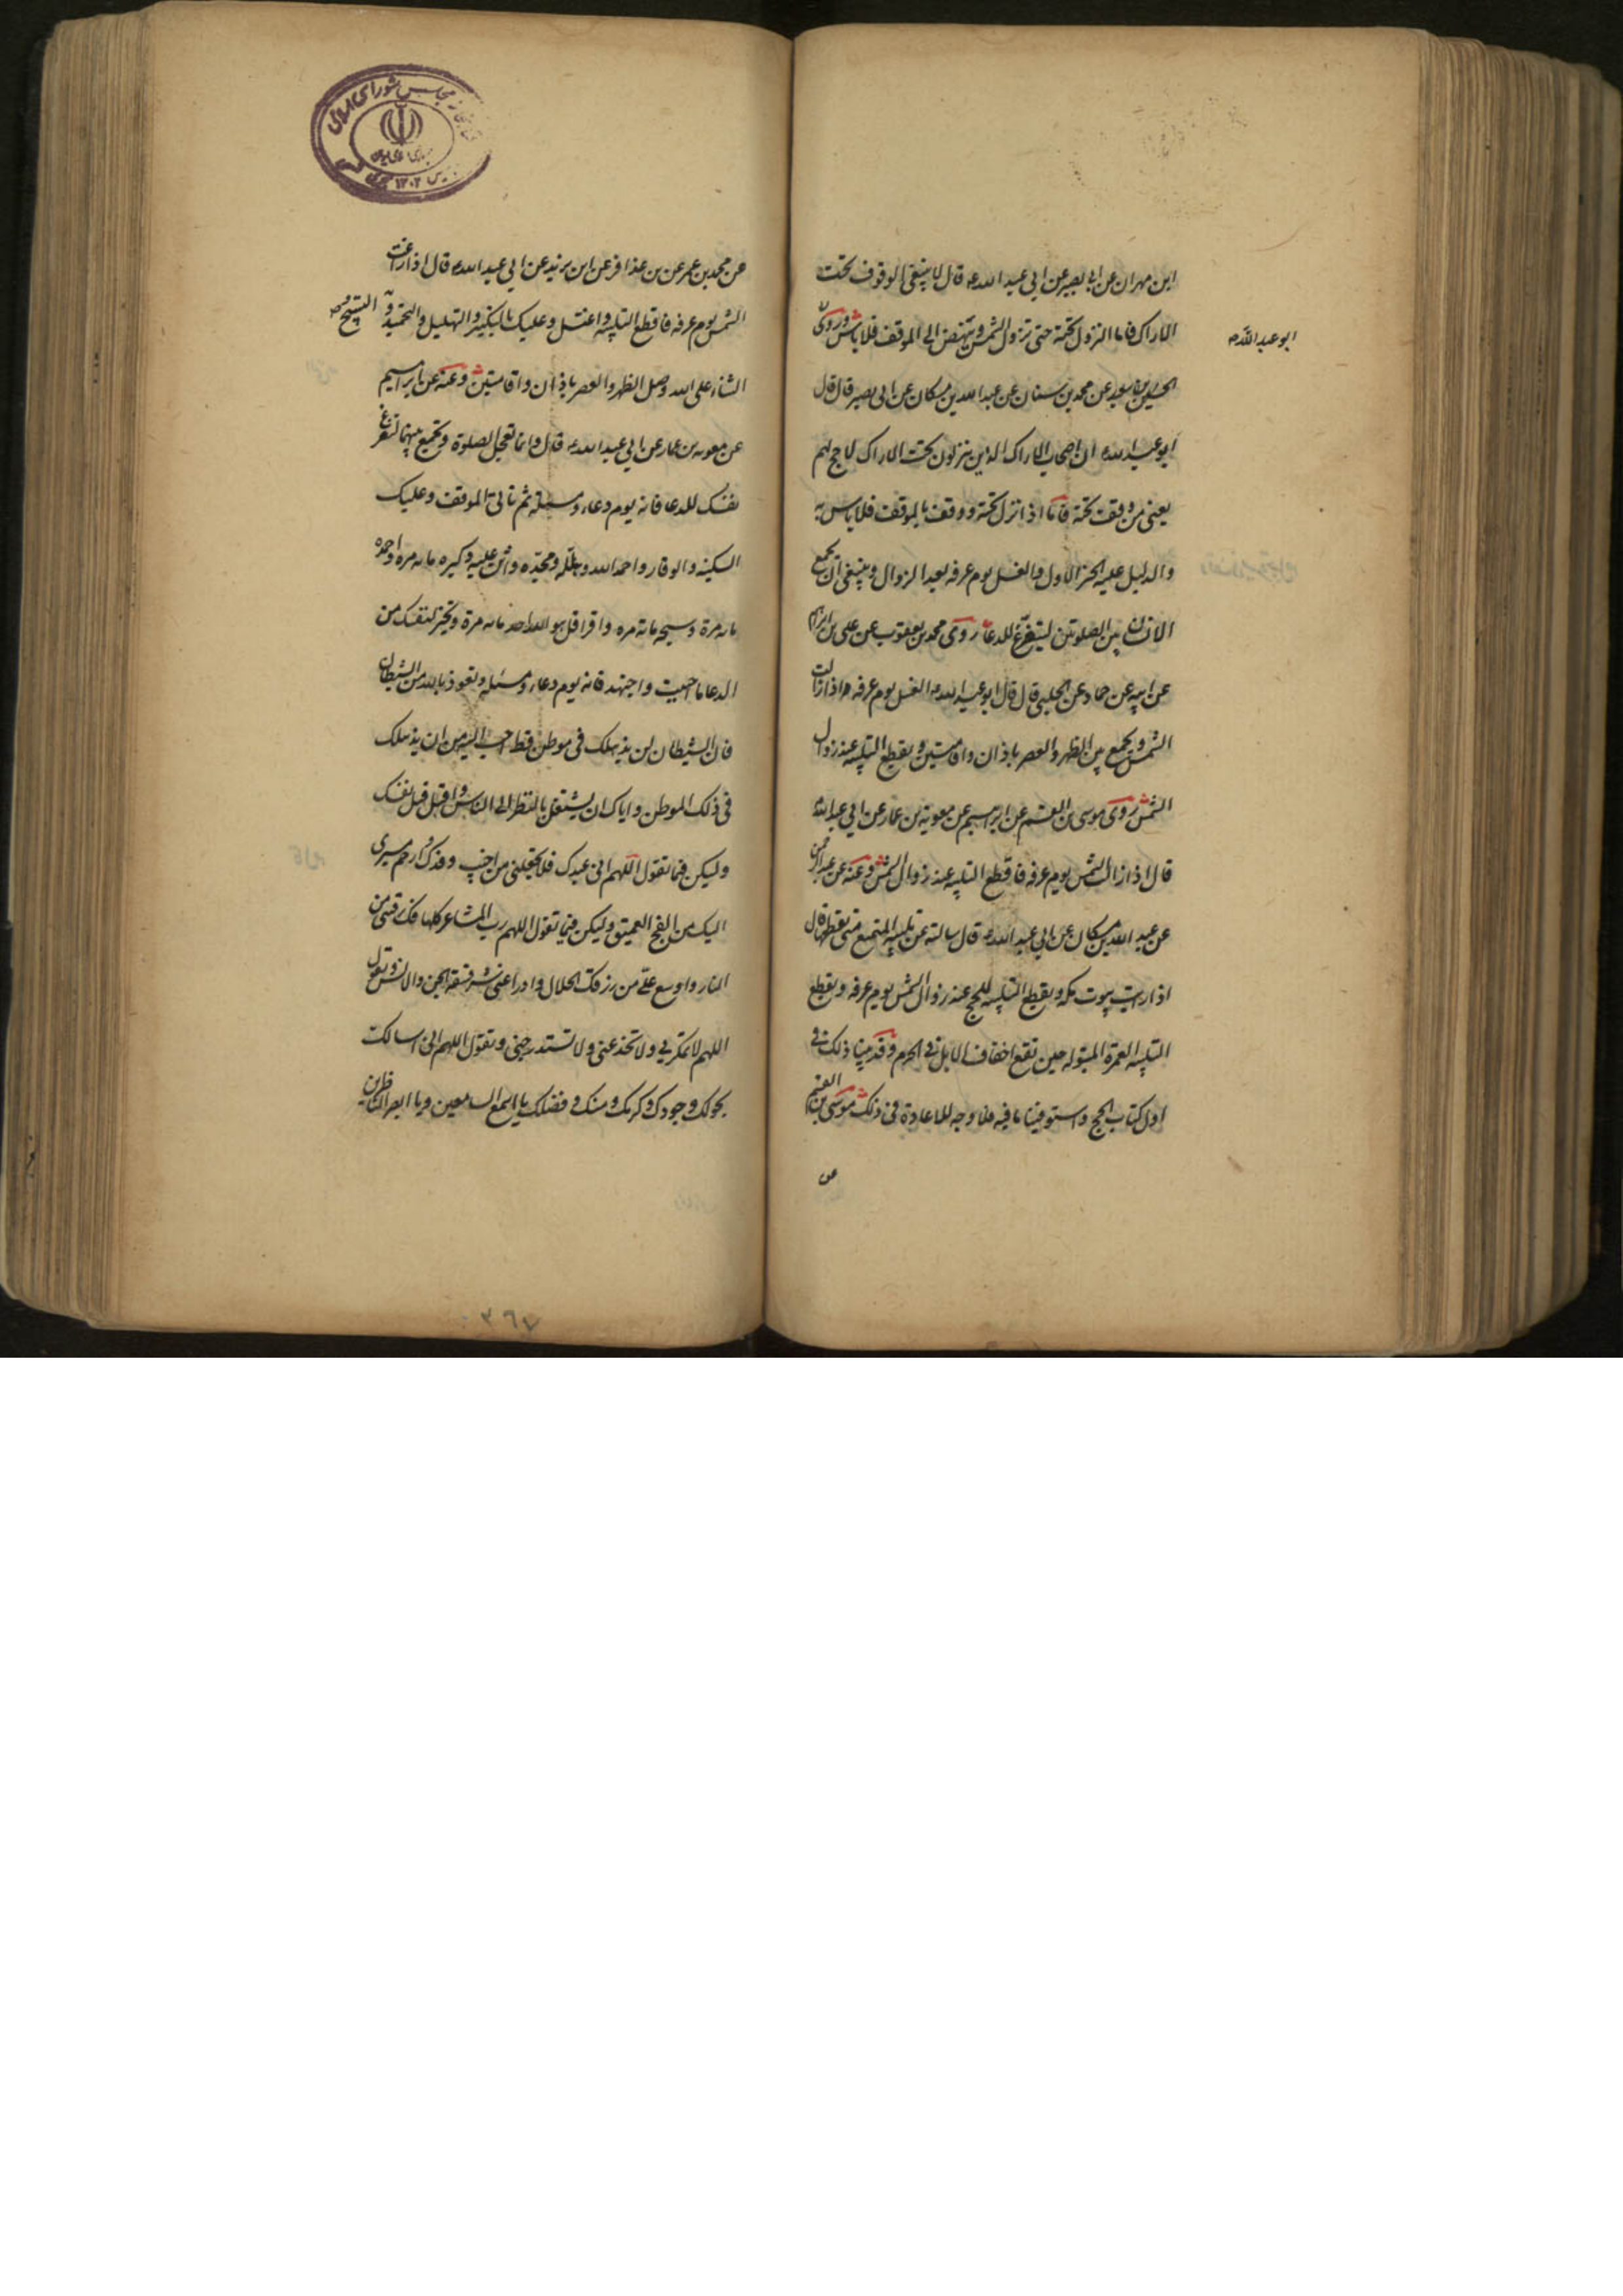 ابن مهران عن ابي بصير عن ابي عبد الله ع قال لا ينبغي الوقوف تحت
الاراك فاما النزول تحته حتى تزول الشمس وينهض الى الموقف فلا باس وروى
ابو عبد الله ع
الحسين بن سعيد عن محمد بن سنان عن عبد الله بن مسكان عن ابي بصير قال قال
ابو عبد الله ع ان اصحاب الاراك الذين ينزلون تحت الاراك لا حج لهم
يعني من وقف تحته فاما اذا نزل تحته ووقف بالموقف فلا باس به
والدليل عليه الخبر الاول والغسل يوم عرفه بعد الزوال وينبغي ان يجمع
الانسان بين الصلوتين ليتفرغ للدعا روى محمد بن يعقوب عن علي بن ابراهيم
عن ابيه عن حماد عن الحلبي قال قال ابو عبد الله ع الغسل يوم عرفه اذا زالت
الشمس ويجمع بين الظهر والعصر باذان واقامتين ويقطع التلبيه عند زوال
الشمس روى موسى بن القسم عن ابرهيم عن معوية بن عمار عن ابي عبد الله
قال اذا زالت الشمس يوم عرفه فاقطع التلبيه عند زوال الشمس وعنه عن عبد الرحمن
عن عبد الله بن مسكان عن ابي عبد الله ع قال سالته عن تلبيه المتمتع متى يقطعها قال
اذا رايت بيوت مكه ويقطع التلبيه للحج عند زوال الشمس يوم عرفه ويقطع
التلبيه العمرة المبتوله حين تقع اخفاف الابل في الحرم وقد بينا ذلك في
اول كتاب الحج واستوفينا ما فيه فلا وجه للاعادة في ذلك موسى بن القسم
عن
عن محمد بن عمر عن بن عذافر عن ابن يزيد عن ابي عبد الله ع قال اذا زاغت
الشمس يوم عرفه فاقطع التلبيه واغتسل وعليك بالتكبير والتهليل والتحميد و التسبيح و
الثناء على الله وصل الظهر والعصر باذان واقامتين وعنه عن ابرهيم
عن معويه بن عمار عن ابي عبد الله ع قال وانما تعجل الصلوة وتجمع بينهما لتفرغ
نفسك للدعا فانه يوم دعاء ومسئلة ثم تاتي الموقف وعليك
السكينه والوقار واحمد الله وهلله ومجده واثن عليه وكبره مائه مره واحمده
مائه مرة وسبحه مائة مره واقرا قل هو الله احد مائه مرة وتخير لنفسك من
الدعا ما احببت واجتهد فانه يوم دعاء ومسئله وتعوذ بالله من الشيطان
فان الشيطان لن يذهلك في موطن قط احب اليه من ان يذهلك
في ذلك الموطن واياك ان تشتغل بالنظر الى الناس واقبل قبل نفسك
وليكن فيما تقول اللهم اني عبدك فلا تجعلني من اخيب وفدك وارحم مسيري
اليك من الفج العميق وليكن فيما تقول اللهم رب المشاعر كلها فك رقبتي من
النار واوسع علي من رزقك الحلال وادرا عني شر فسقة الجن والانس وتقول
اللهم لا تمكر بي ولا تخدعني ولا تستدرجني وتقول اللهم اني اسالك
بحولك وجودك وكرمك ومنك وفضلك يا اسمع السامعين ويا ابصر الناظرين
٣٦٧